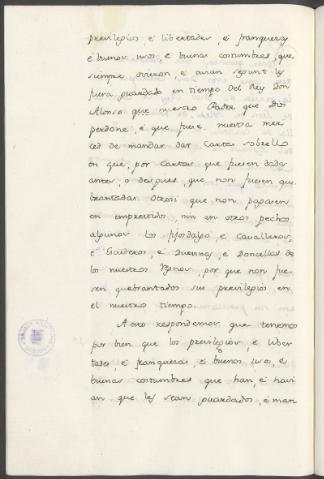 previlegios é libertades, é franquezas
é buenos usos, é buenas costumbres, que
siempre ovieron, é avian segunt les
fuera guardado en tiempo del Rey Don
Alonso que nuestro Padre que Dios
perdone, é que fuese nuestra mer-
ced de mandar dar Cartas sobrello
en que, por Cartas que fuesen dadas
antes, o despues, que non fuesen que
brantadas. Otrosi que non pagasen
en emprestido, nin en otros pechos
algunos los fijosdalgo é Cavalleros,
é Escuderos, é Dueñas é Doncellas de
los nuestros Regnos, por que non fue
sen quebrantados sus previlegios en
el nuestro tiempo.
A esto respondemos que tenemos
por bien que los previlegios, é liber
tades, é franquezas, é buenos usos, é
buenas costumbres que han, é havi
an que les sean guardados, é man